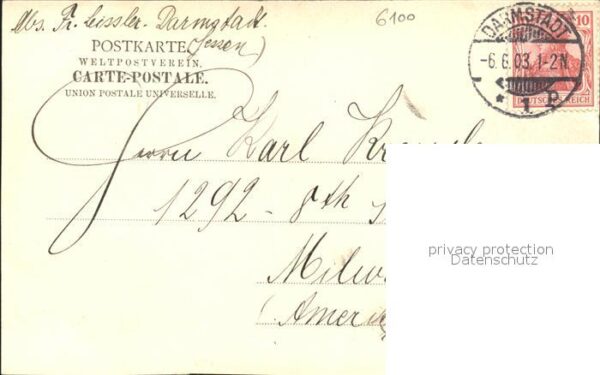 Abs. Fr. Leissler - Darmstadt.
(Hessen)
6100
POSTKARTE.
WELTPOSTVEREIN.
CARTE-POSTALE.
UNION POSTALE UNIVERSELLE.
DARMSTADT
-6.6.03.1-2N.
* 1 P
10
DEUTSCHES REICH
Herrn Karl
1292 - 8th
Milw
(Amer
privacy protection
Datenschutz